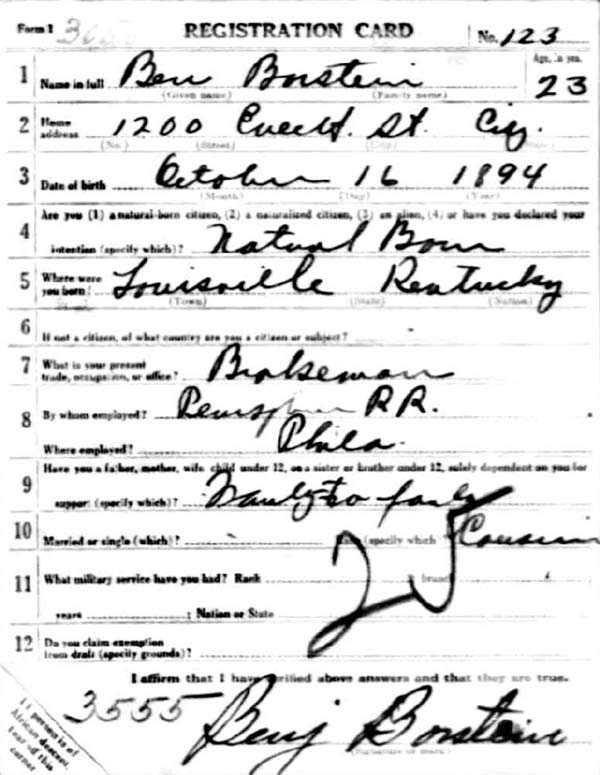 Form 1 REGISTRATION CARD No. 123
Age, in yrs.
1 Name in full Ben Borstein 23
(Given name) (Family name)
2 Home address 1200 St. City.
(No.) (Street) (City) (State)
3 Date of birth October 16 1894
(Month) (Day) (Year)
Are you (1) a natural-born citizen, (2) a naturalized citizen, (3) an alien, (4) or have you declared your
4 intention (specify which)? Natural Born
5 Where were you born? Louisville Kentucky
(Town) (State) (Nation)
6 If not a citizen, of what country are you a citizen or subject?
7 What is your present trade, occupation, or office? Brakeman
8 By whom employed? R R.
Where employed? Phila.
Have you a father, mother, wife, child under 12, or a sister or brother under 12, solely dependent on you for
9 support (specify which)?
10 Married or single (which)? (specify which)
11 What military service have you had? Rank branch
years ; Nation or State
12 Do you claim exemption from draft (specify grounds)?
I affirm that I have verified above answers and that they are true.
3555 Benj Borstein
(Signature or mark)
If person is of
African descent,
tear off this
corner